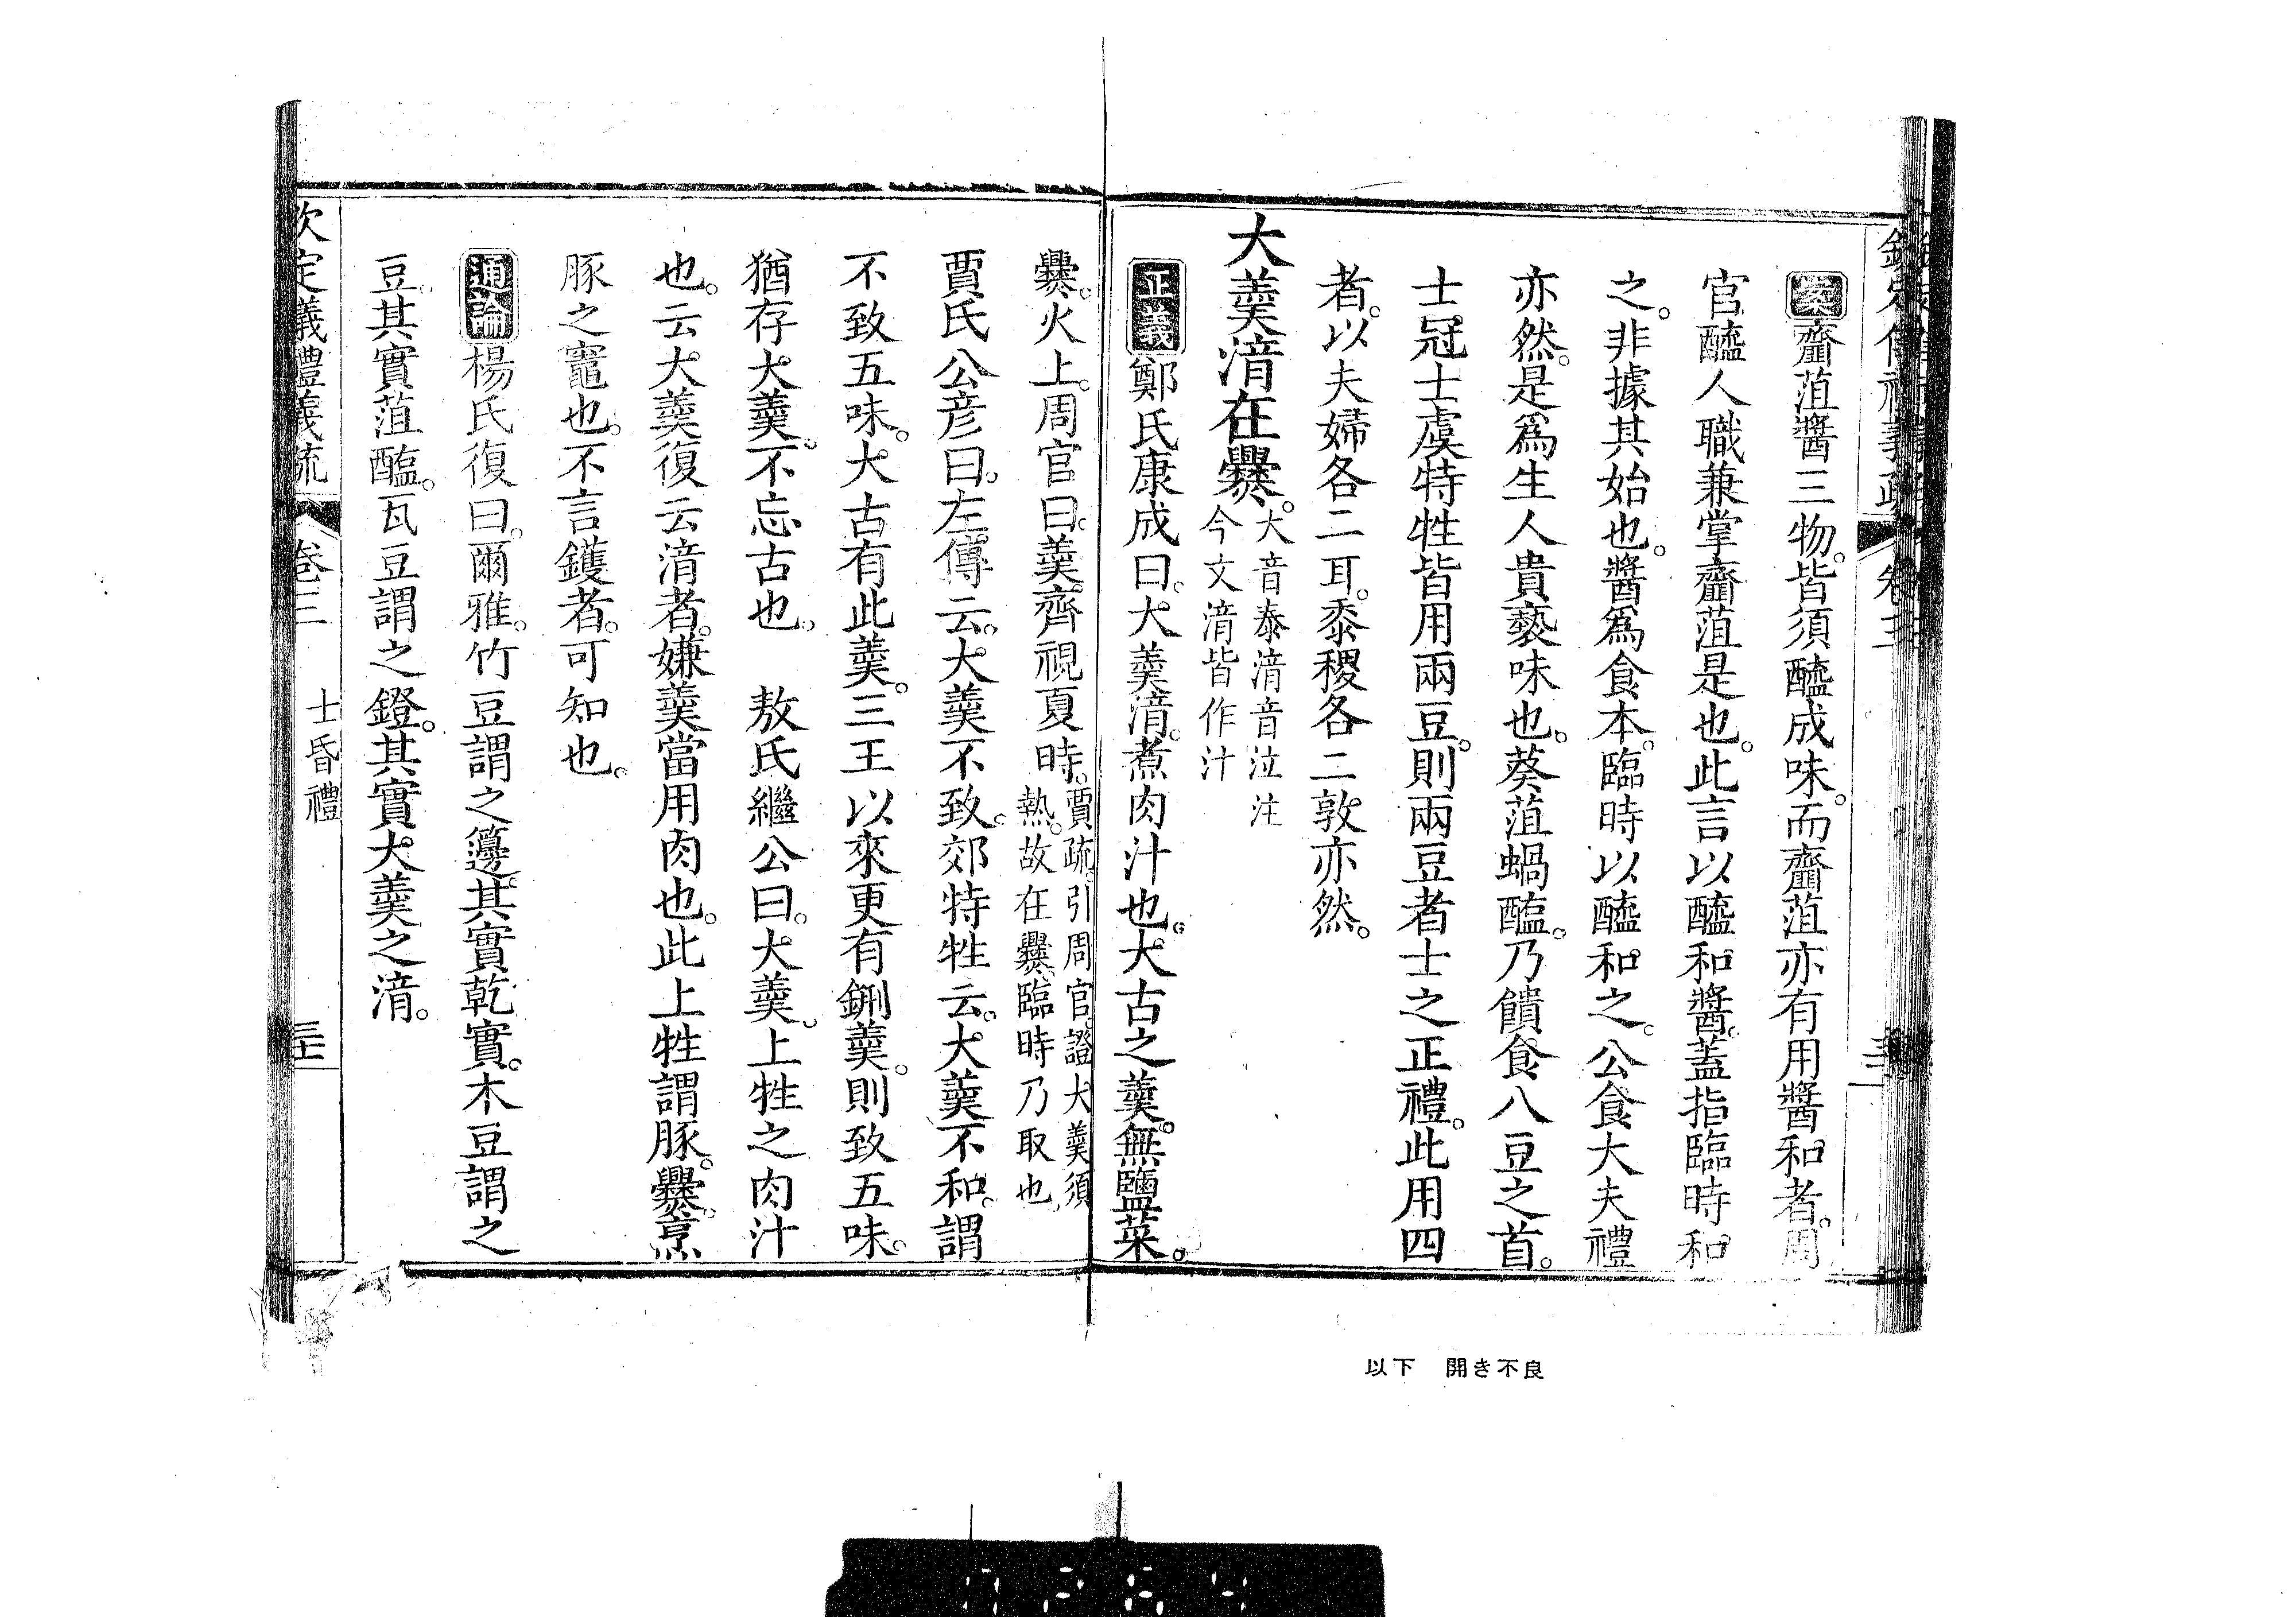 案齏菹醬三物。皆須醯成味。而齏菹亦有用醬和者。周
官醯人職兼掌齏菹是也。此言以醯和醬。蓋指臨時和
之。非據其始也。醬爲食本。臨時以醯和之。公食大夫禮
亦然。是爲生人貴褻味也。葵菹蝸醢。乃饋食八豆之首。
士冠士虞特牲皆用兩豆。則兩豆者士之正禮。此用四
者。以夫婦各二耳。黍稷各二敦亦然。
大羹湆在爨。大音泰湆音泣注
今文湆皆作汁
正義鄭氏康成曰。大羹湆。煮肉汁也。大古之羹。無鹽菜。
爨。火上。周官曰。羹齊視夏時。賈疏。引周官。證大羹須
熱。故在爨。臨時乃取也。
賈氏公彦曰。左傳云。大羹不致。郊特牲云。大羹不和。謂
不致五味。大古有此羹。三王以來更有鉶羹。則致五味。
猶存大羹。不忘古也。　敖氏繼公曰。大羹。上牲之肉汁
也。云大羹復云湆者。嫌羹當用肉也。此上牲謂豚。爨。烹
豚之竈也。不言鑊者。可知也。
通論楊氏復曰。爾雅。竹豆謂之籩。其實乾實。木豆謂之
豆。其實菹醢。瓦豆謂之鐙。其實大羹之湆。
欽定儀禮義疏　卷三　士昏禮
以下　開き不良